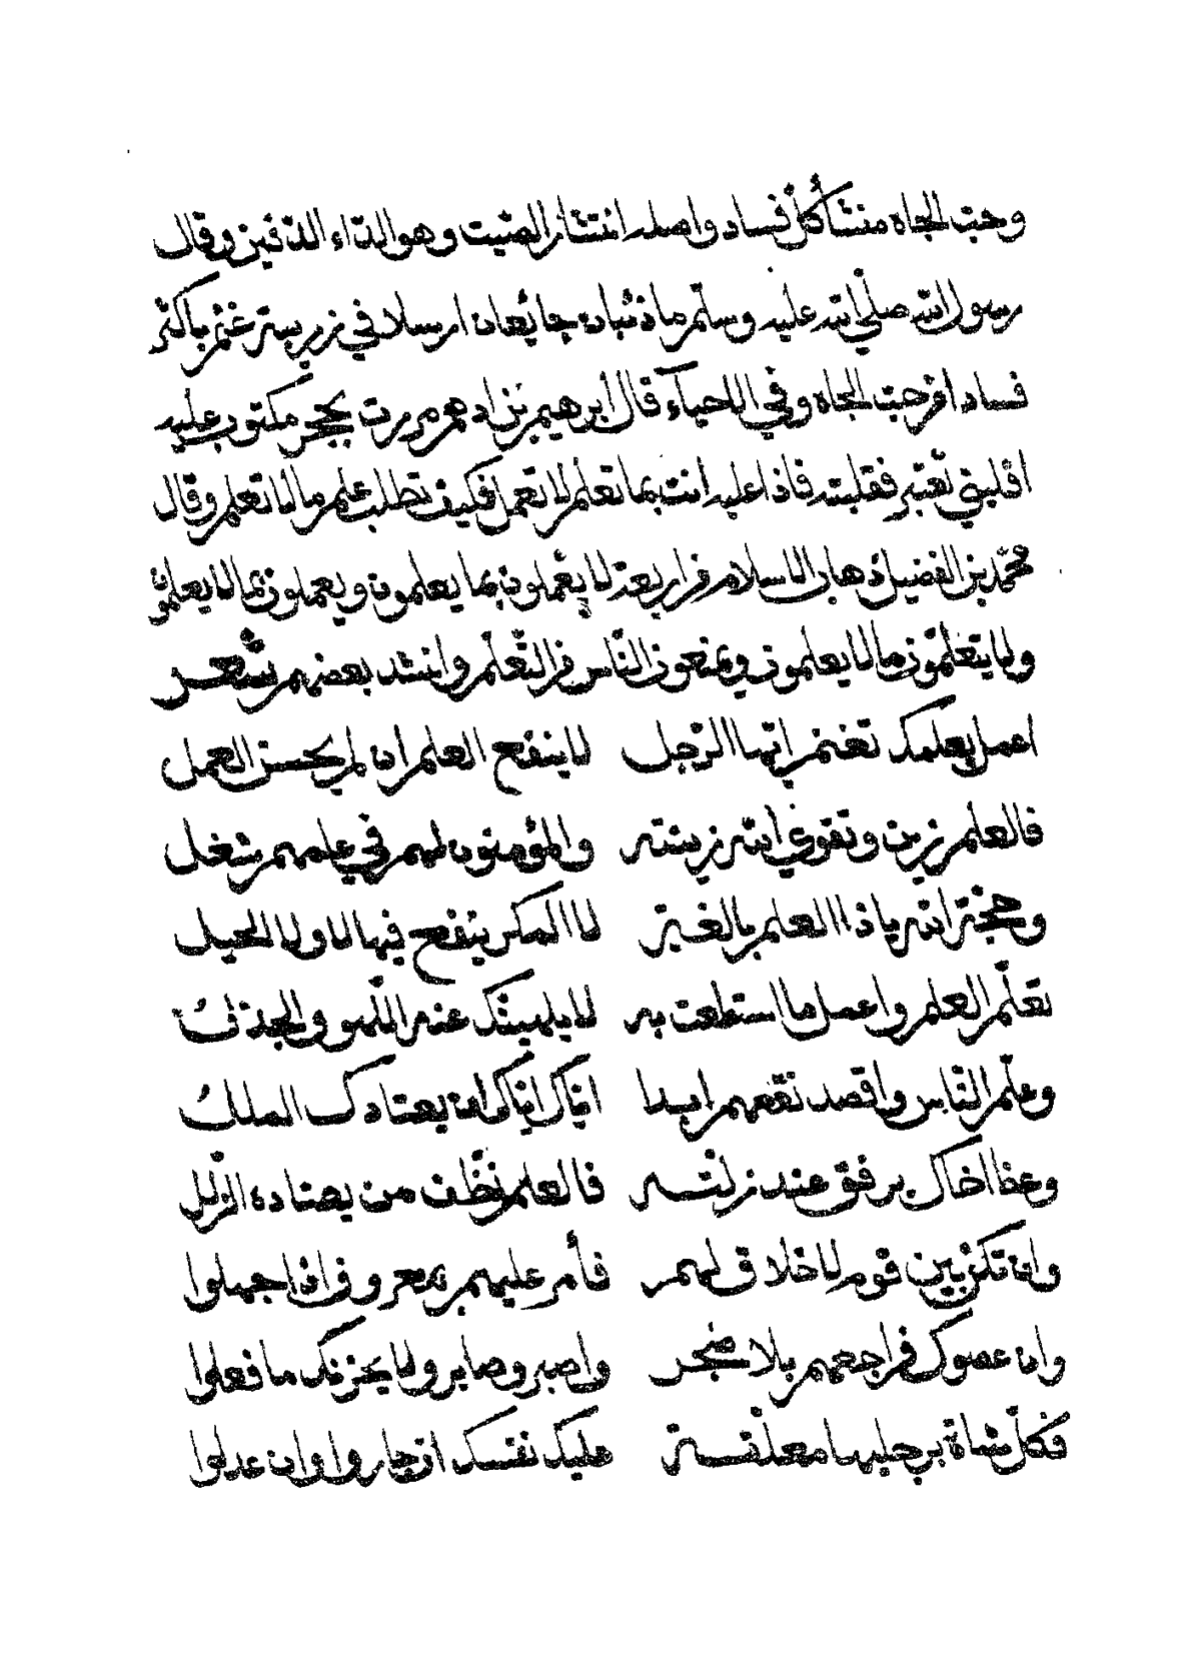 وحبّ الجاه منشأ كلّ فساد واصله انتشار الصّيت وهو الدّاء الدّفين وقال
رسول الله صلّي الله عليه وسلّم ما ذئبان جايعان ارسلا في زريبة غنم باكثر
فسادا من حبّ الجاه وفي الاحياء قال ابرهيم بن ادهم مررت بحجر مكتوب عليه
اقلبني تعتبر فقلبته فاذا عليه انت بما تعلم لا تعمل فكيف تطلب علم ما لا تعلم وقال
محمّد بن الفضيل ذهاب الاسلام من اربعة لا يعملون بما يعلمون ويعملون بما لا يعلمون
ولا يتعلّمون ما لا يعلمون ويمنعون النّاس من التّعلّم وانشد بعضهم شعر
اعمل بعلمك تغنم ايّها الرّجل   لا ينفع العلم ان لم يحسن العمل
فالعلم زين وتقوي الله زينته   والمؤمنون لهم في علمهم شغل
وحجّة الله يا ذا العلم بالغة   لا المكر ينفع فيها لا ولا الحيل
تعلّم العلم واعمل ما استطعت به   لا يلهينّك عنه اللّهو والجدل
وعلّم النّاس واقصد نفعهم ابدا   ايّاك ايّاك ان يعتادك الملل
وعظ اخاك برفق عند زلّته   فالعلم يعطف من يعتاده الزّلل
وان تكن بين قوم لا خلاق لهم   فأمر عليهم بمعروف اذا جهلوا
وان عصوك فراجعهم بلا ضجر   واصبر وصابر ولا يحزنك ما فعلوا
فكلّ شاة برجليها معلّقة   عليك نفسك ان جاروا وان عدلوا